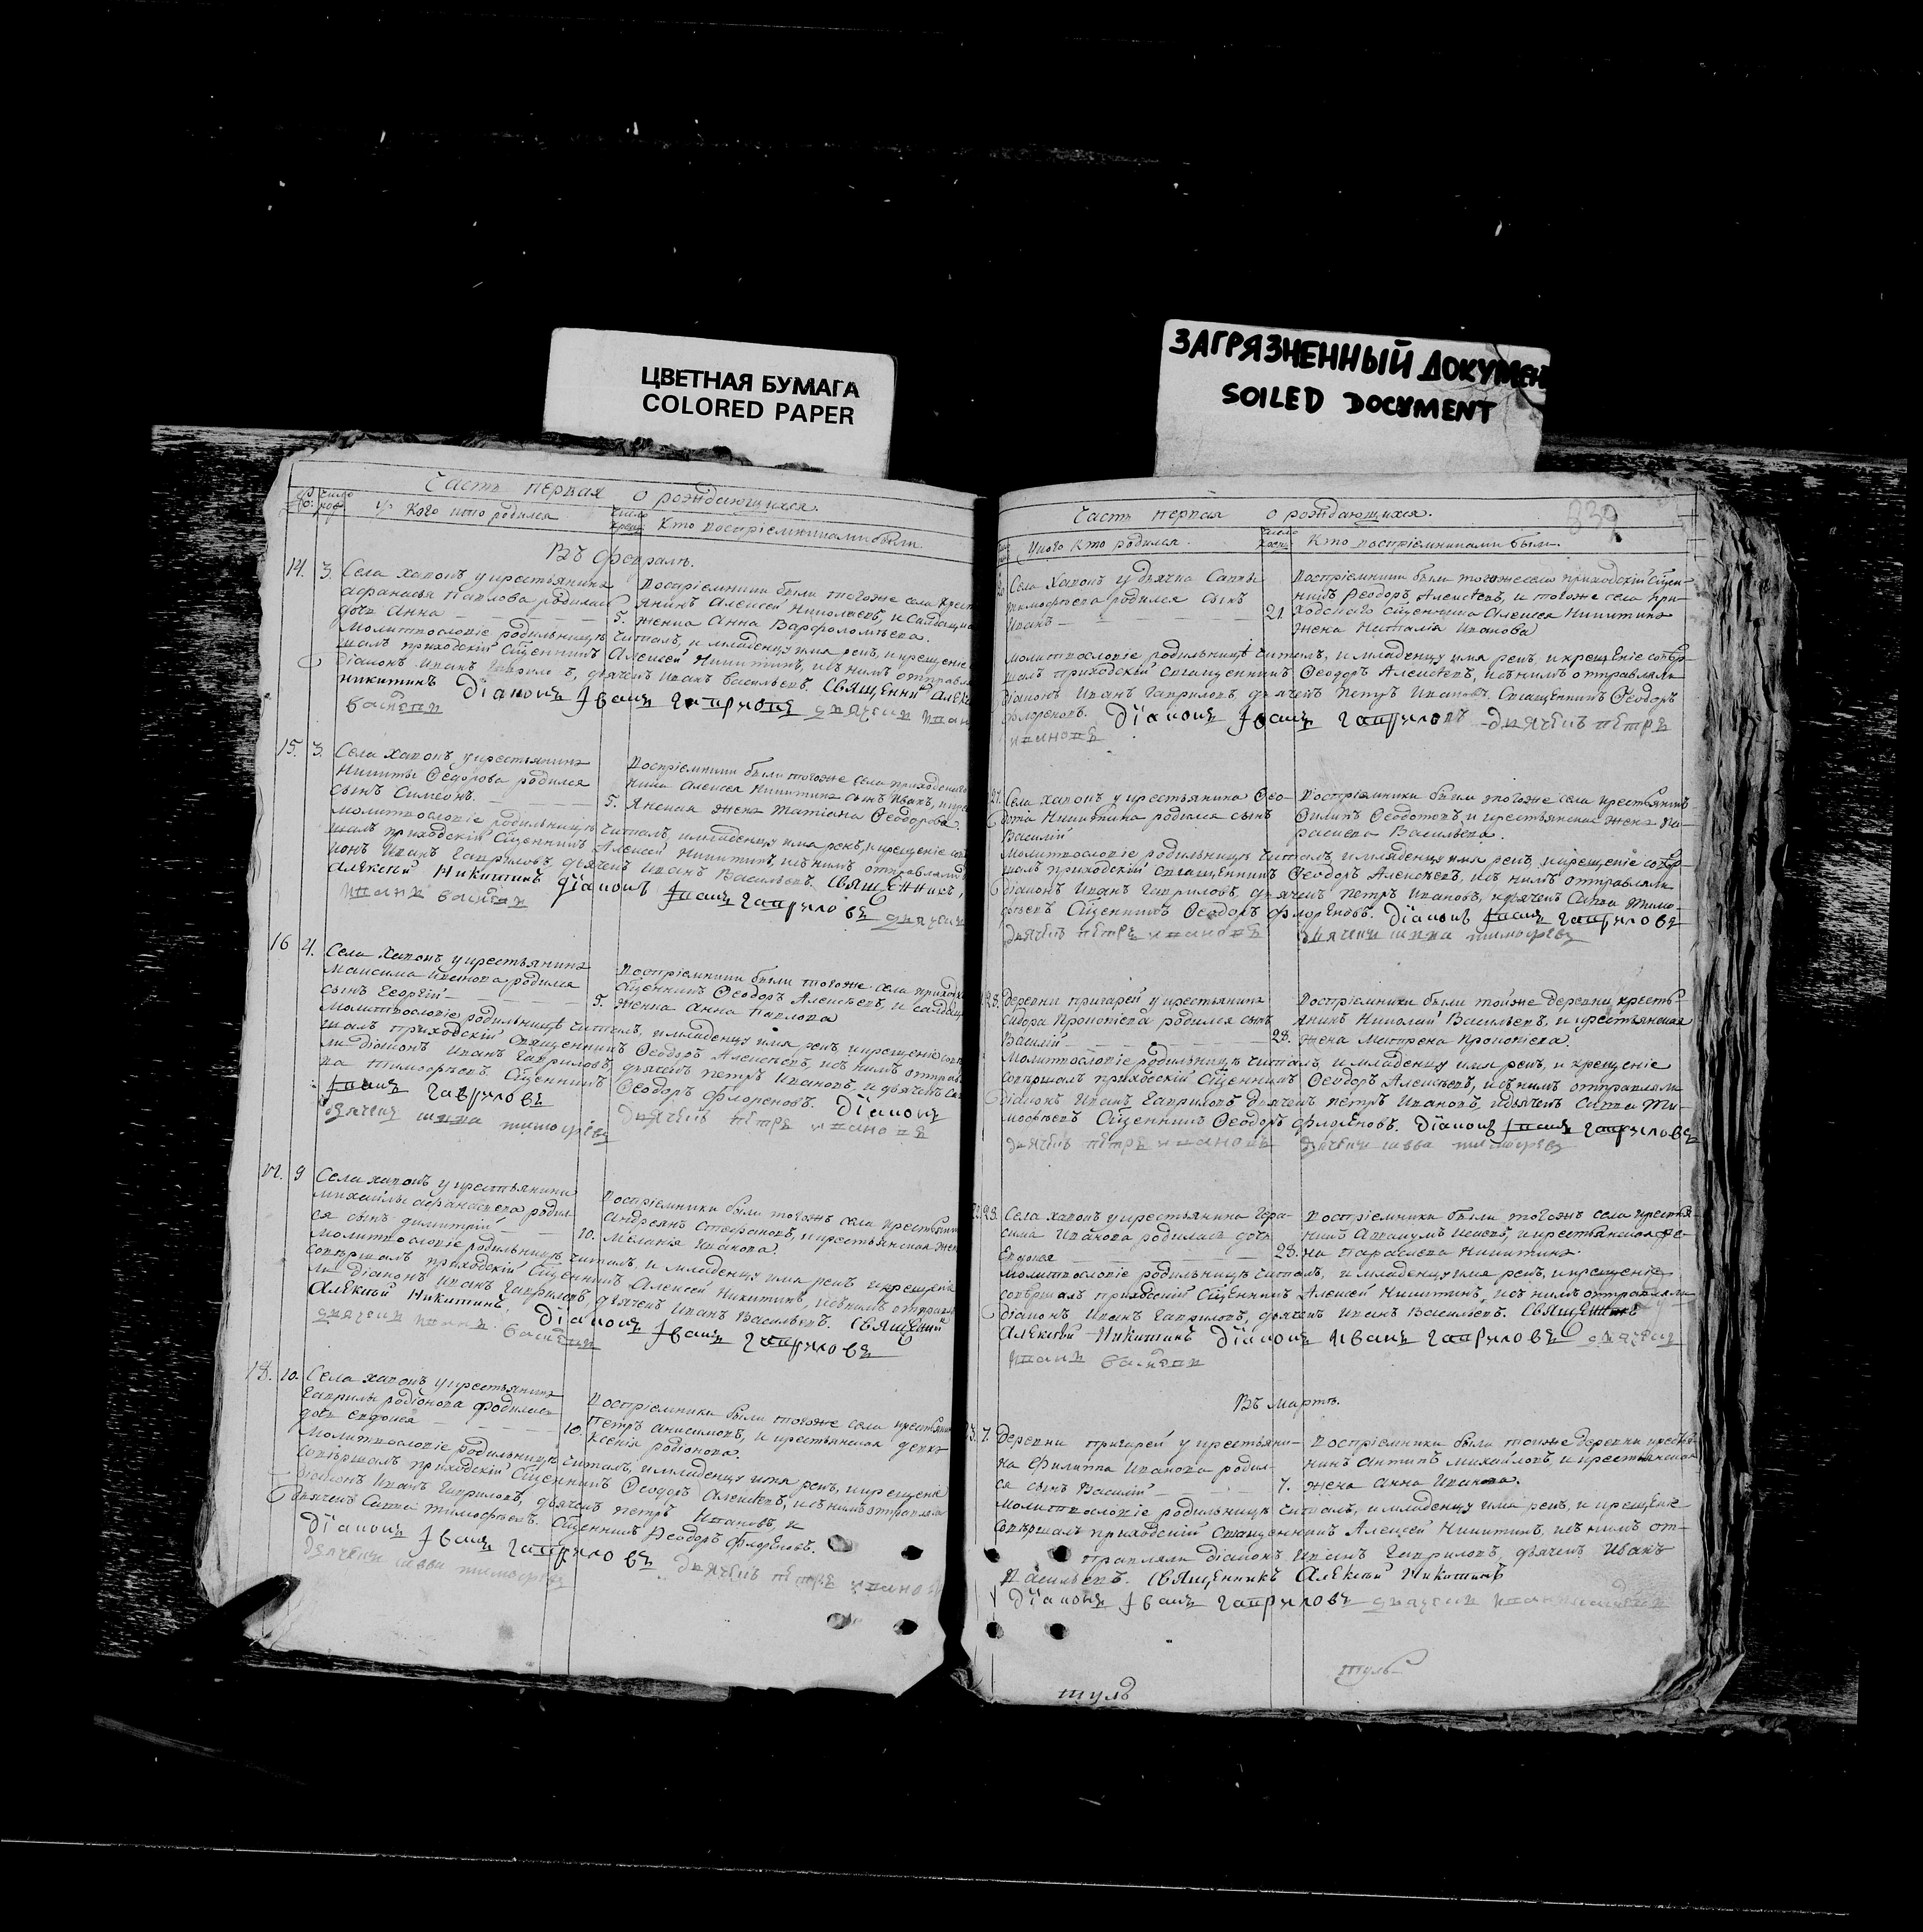 ЦВЕТНАЯ БУМАГА
COLORED PAPER
ЗАГРЯЗНЕННЫЙ ДОКУМЕН
SOILED DOCUMENT
Часть первая о рождающихся.
У Кого кто родился
Кто воспріемниками были
Въ Февралѣ.
14. 3. Села Хапонъ у крестьянина
Афанасья Павлова родилась
дочь Анна
Воспріемники были тогоже села крест
янинъ Алексей Николаевъ, и салдацка
5. женка Анна Варфоломѣева.
Молитвословіе родильницѣ читалъ, и младенцу имя рекъ, и крещеніе
шалъ приходскій Сщенникъ Алексей Никитинъ, и съ нимъ отправля
діаконъ Иванъ Гаврило въ, дьячекъ Иванъ Васильевъ. Священни Алекс
Никитинъ Діаконъ Іванъ Гавриловъ дьячекъ иван
15. 3. Села Хапонъ, у крестьянина
Никиты Ѳедорова родился
сынъ Симеонъ.
Воспріемники были тогоже села приходскаго
ника Алексея Никитина сынъ Иванъ, и крес
5. янская жена Татіана Ѳеодорова.
Молитвословіе родильницѣ читалъ, и младенцу имя рекъ, и крещеніе сов
шалъ приходскій Сщенникъ Алексей Никитинъ, и съ нимъ отправляли
конъ Иванъ Гавриловъ, дьячекъ Иванъ Васильевъ. Священникъ,
Алексей Никитинъ Діаконъ Іванъ Гавриловъ дьячекъ
16 4. Села Хапонъ у крестьянина
Максима Иванова родился
сынъ Георгій
Воспріемники были тогоже села приходск
Сщенникъ Ѳеодоръ Алексѣевъ, и салдац
5. женка Анна Павлова
Молитвословіе родильницѣ читалъ, и младенцу имя рекъ, и крещеніе сов
шалъ приходскій Священникъ Ѳеодоръ Алексѣевъ, и съ нимъ отправ
ли діаконъ Иванъ Гавриловъ, дьячекъ Петръ Ивановъ, и дьячекъ Са
ва Тимофѣевъ. Сщенникъ Ѳеодоръ Флореновъ. Діаконъ
Іванъ Гавриловъ
дьячекъ сава тимофѣевъ дьячекъ петръ ивановъ
17. 9 Села Хапонъ у крестьянина
Михайлы Афанасьева родил-
ся сынъ Димитрій
Воспріемники были тогожъ села крестьянин
Андреянъ Стефановъ, и крестьянская жен
10. Меланія Иванова.
Молитвословіе родильницѣ читалъ, и младенцу имя рекъ и крещеніе
совершалъ приходскій Сщенникъ Алексей Никитинъ, и съ нимъ отправля
ли діаконъ Иванъ Гавриловъ, дьячекъ Иванъ Васильевъ. Священий
Алексей Никитинъ. Діаконъ Іванъ Гавриловъ
18. 10. Села Хапонъ у крестьянина
Гаврилы Родіонова родилась
дочь Евдокея
Воспріемники были тогоже села крестьяни
10. Петръ Анисимовъ, и крестьянская девка
Ксенія Родіонова.
Молитвословіе родильницѣ читалъ, и младенцу имя рекъ, и крещеніе
совершалъ приходскій Сщенникъ Ѳеодоръ Алексѣевъ, и съ нимъ отправляли
діаконъ Иванъ Гавриловъ, дьячекъ Петръ Ивановъ и
дьячекъ Савва Тимофѣевъ. Сщенникъ Ѳеодоръ Флореновъ.
Діаконъ Іванъ Гавриловъ дьячекъ петръ ивано
дьячекъ савва тимофѣевъ
Часть первая о рождающихся.
339
Укого кто родился.
Кто воспріемниками были.
Села Хапонъ у дьячка Саввы
Тимофѣева родился сынъ
Иванъ
Воспріемники были тогожесела приходскій Сщен-
никъ Ѳеодоръ Алексѣевъ, и тогоже села при-
21. ходскаго Сщенника Алексея Никитина
жена Наталія Иванова
Молитвословіе родильницѣ читалъ, и младенцу имя рекъ, и крещеніе совер-
шалъ приходскій Священникъ Ѳеодоръ Алексѣевъ, и съ нимъ отправляли
діаконъ Иванъ Гавриловъ дьячекъ Петръ Ивановъ. Священникъ Ѳеодоръ
Флореновъ. Діаконъ Іванъ Гавриловъ дьячекъ петръ
ивановъ
Села Хапонъ у крестьянина Ѳео-
дота Никитина родился сынъ
Василій
Воспріемники были тогоже села крестьянинъ
Филипъ Ѳеодотовъ, и крестьянская жена Па-
расковья Васильева.
Молитвословіе родильницѣ читалъ, и младенцу имя рекъ, и крещеніе совер-
шалъ приходскій Священникъ Ѳеодоръ Алексѣевъ, и съ нимъ отправляли
діаконъ Иванъ Гавриловъ, дьячекъ Петръ Ивановъ, и дьячекъ Савва Тимо-
фѣевъ Сщенникъ Ѳеодоръ Флореновъ. Діаконъ Іванъ Гавриловъ
дьячекъ петръ ивановъ дьячекъ савва тимофѣевъ
Деревни Пригарей у крестьянина
Сидора Прокопіева родился сынъ
Василій
Воспріемники были тойже деревни кресть-
янинъ Николай Васильевъ, и крестьянская
28. жена Матрена Прокопіева.
Молитвословіе родильницѣ читалъ, и младенцу имя рекъ, и крещеніе
совершалъ приходскій Сщенникъ Ѳеодоръ Алексѣевъ, и съ нимъ отправляли
діаконъ Иванъ Гавриловъ дьячекъ Петръ Ивановъ, и дьячекъ Савва Ти-
мофѣевъ Сщенникъ Ѳеодоръ Флореновъ. Діаконъ Іванъ Гавриловъ
дьячекъ петръ ивановъ дьячекъ савва тимофѣевъ
Села Хапонъ у крестьянина Гера-
сима Иванова родилась дочь
Евдокея
Воспріемники были тогожъ села крестья-
и крестьянская же-
28. на Параскева Никитина.
Молитвословіе родильницѣ читалъ, и младенцу имя рекъ, и крещеніе
совершалъ приходскій Сщенникъ Алексей Никитинъ, и съ нимъ отправляли
діаконъ Иванъ Гавриловъ, дьячекъ Иванъ Васильевъ. Священникъ
Алексей Никитинъ Діаконъ Иванъ Гавриловъ дьячекъ
Въ Мартѣ.
7. Деревни Пригарей у крестьяни-
на Филиппа Иванова родил-
ся сынъ Василій
Воспріемники были тойже деревни кресть-
нинъ Антипъ Михайловъ, и крестьянская
7. жена Анна Иванова.
Молитвословіе родильницѣ читалъ, и младенцу имя рекъ, и крещеніе
совершалъ приходскій Священникъ Алексей Никитинъ, и съ нимъ от-
правляли діаконъ Иванъ Гавриловъ, дьячекъ Иванъ
Васильевъ. Священникъ Алексей Никитинъ
Діаконъ Іванъ Гавриловъ дьячекъ